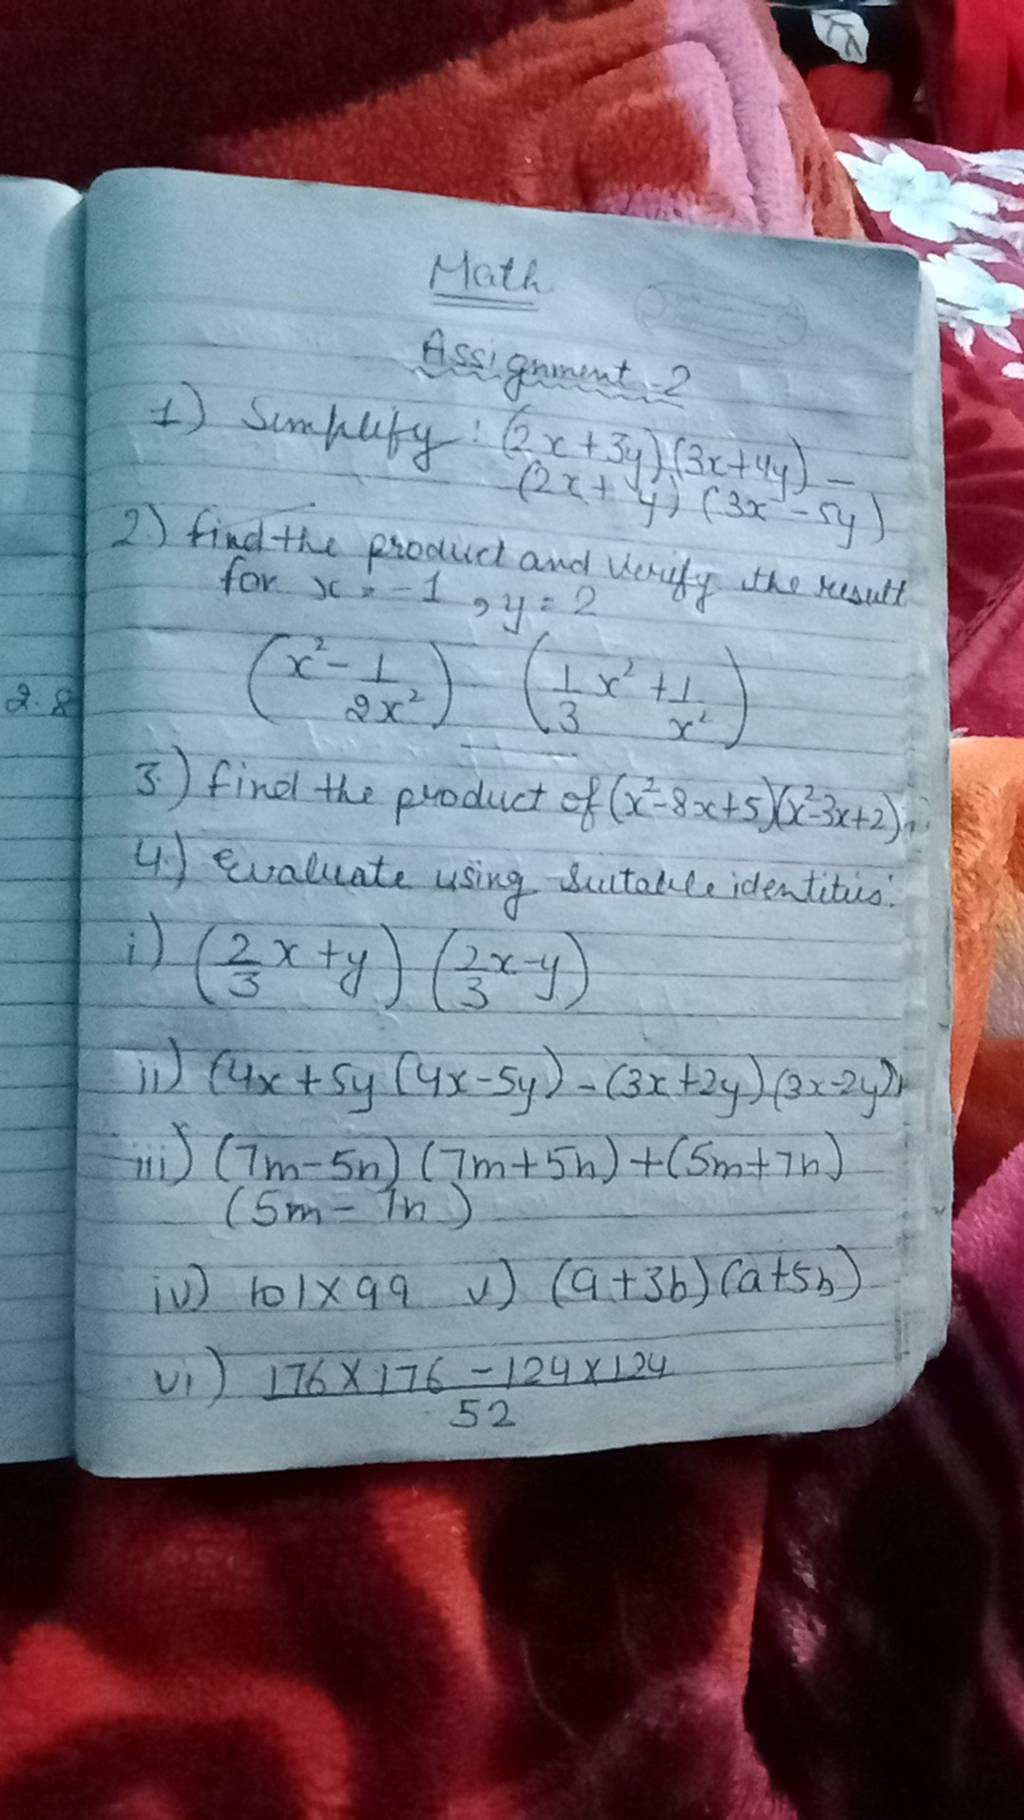 Math
Assignment-2
1) Simplify: (2x+3y)(3x+4y) –
(2x+y)(3x-5y)
2.) find the product and verify the result
for x = -1, y = 2
(x² - 1/2x²) (1/3 x² + 1/x²)
2.8
3.) find the product of (x²-8x+5)(x²-3x+2)
4.) Evaluate using suitable identities:
i) (2/3 x + y) (2/3 x - y)
ii) (4x+5y (4x-5y) - (3x+2y)(3x-2y)
iii) (7m-5n) (7m+5n) + (5m+7n)
(5m - 7n)
iv) 101x99 v) (a+3b)(a+5b)
vi) 176x176 - 124x124
52